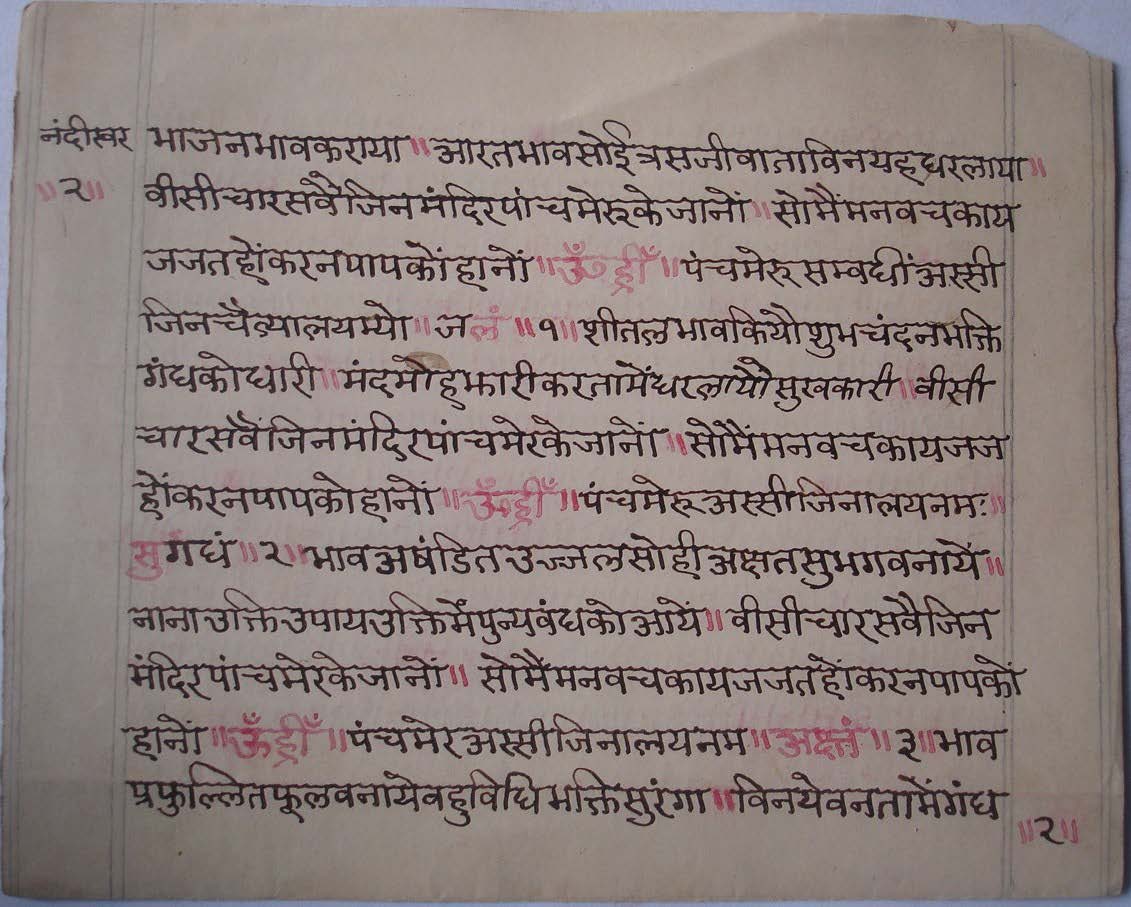 नंदीस्वर
॥२॥
भाजनभावकराया॥आरतभावसोईत्रसजीवाताविनयहधरलाया॥
वीसीचारसवैजिनमंदिरपांचमेरुकेजानों॥सोमैंमनवचकाय
जजतहोंकरनपापकोंहानों॥ॐह्रीँ॥पंचमेरुसम्वधींअस्सी
जिनचैत्यालयम्यो॥जलं॥१॥शीतलभावकियौशुभचंदनभक्ति
गंधकोधारी॥मंदमोहझारीकरतामेंधरलायौसुखकारी॥वीसी
चारसवैंजिनमंदिरपांचमेरकेजानों॥सोमैंमनवचकायजज
होंकरनपापकोहानों॥ॐह्रीँ॥पंचमेरुअस्सीजिनालयनमः॥
सुगधं॥२॥भावअषंडितउज्जलसोहीअक्षतसुभगवनायें॥
नानाउक्तिउपायउक्तिमेंपुन्यवंधकोआयें॥वीसीचारसवैजिन
मंदिरपांचमेरकेजानों॥सोमैंमनवचकायजजतहोंकरनपापकों
हानों॥ॐह्रीँ॥पंचमेरअस्सीजिनालयनम॥अक्षतं॥३॥भाव
प्रफुल्लितफूलवनायेवहुविधिभक्तिसुरंगा॥विनयेवनतामैंगंध
॥२॥